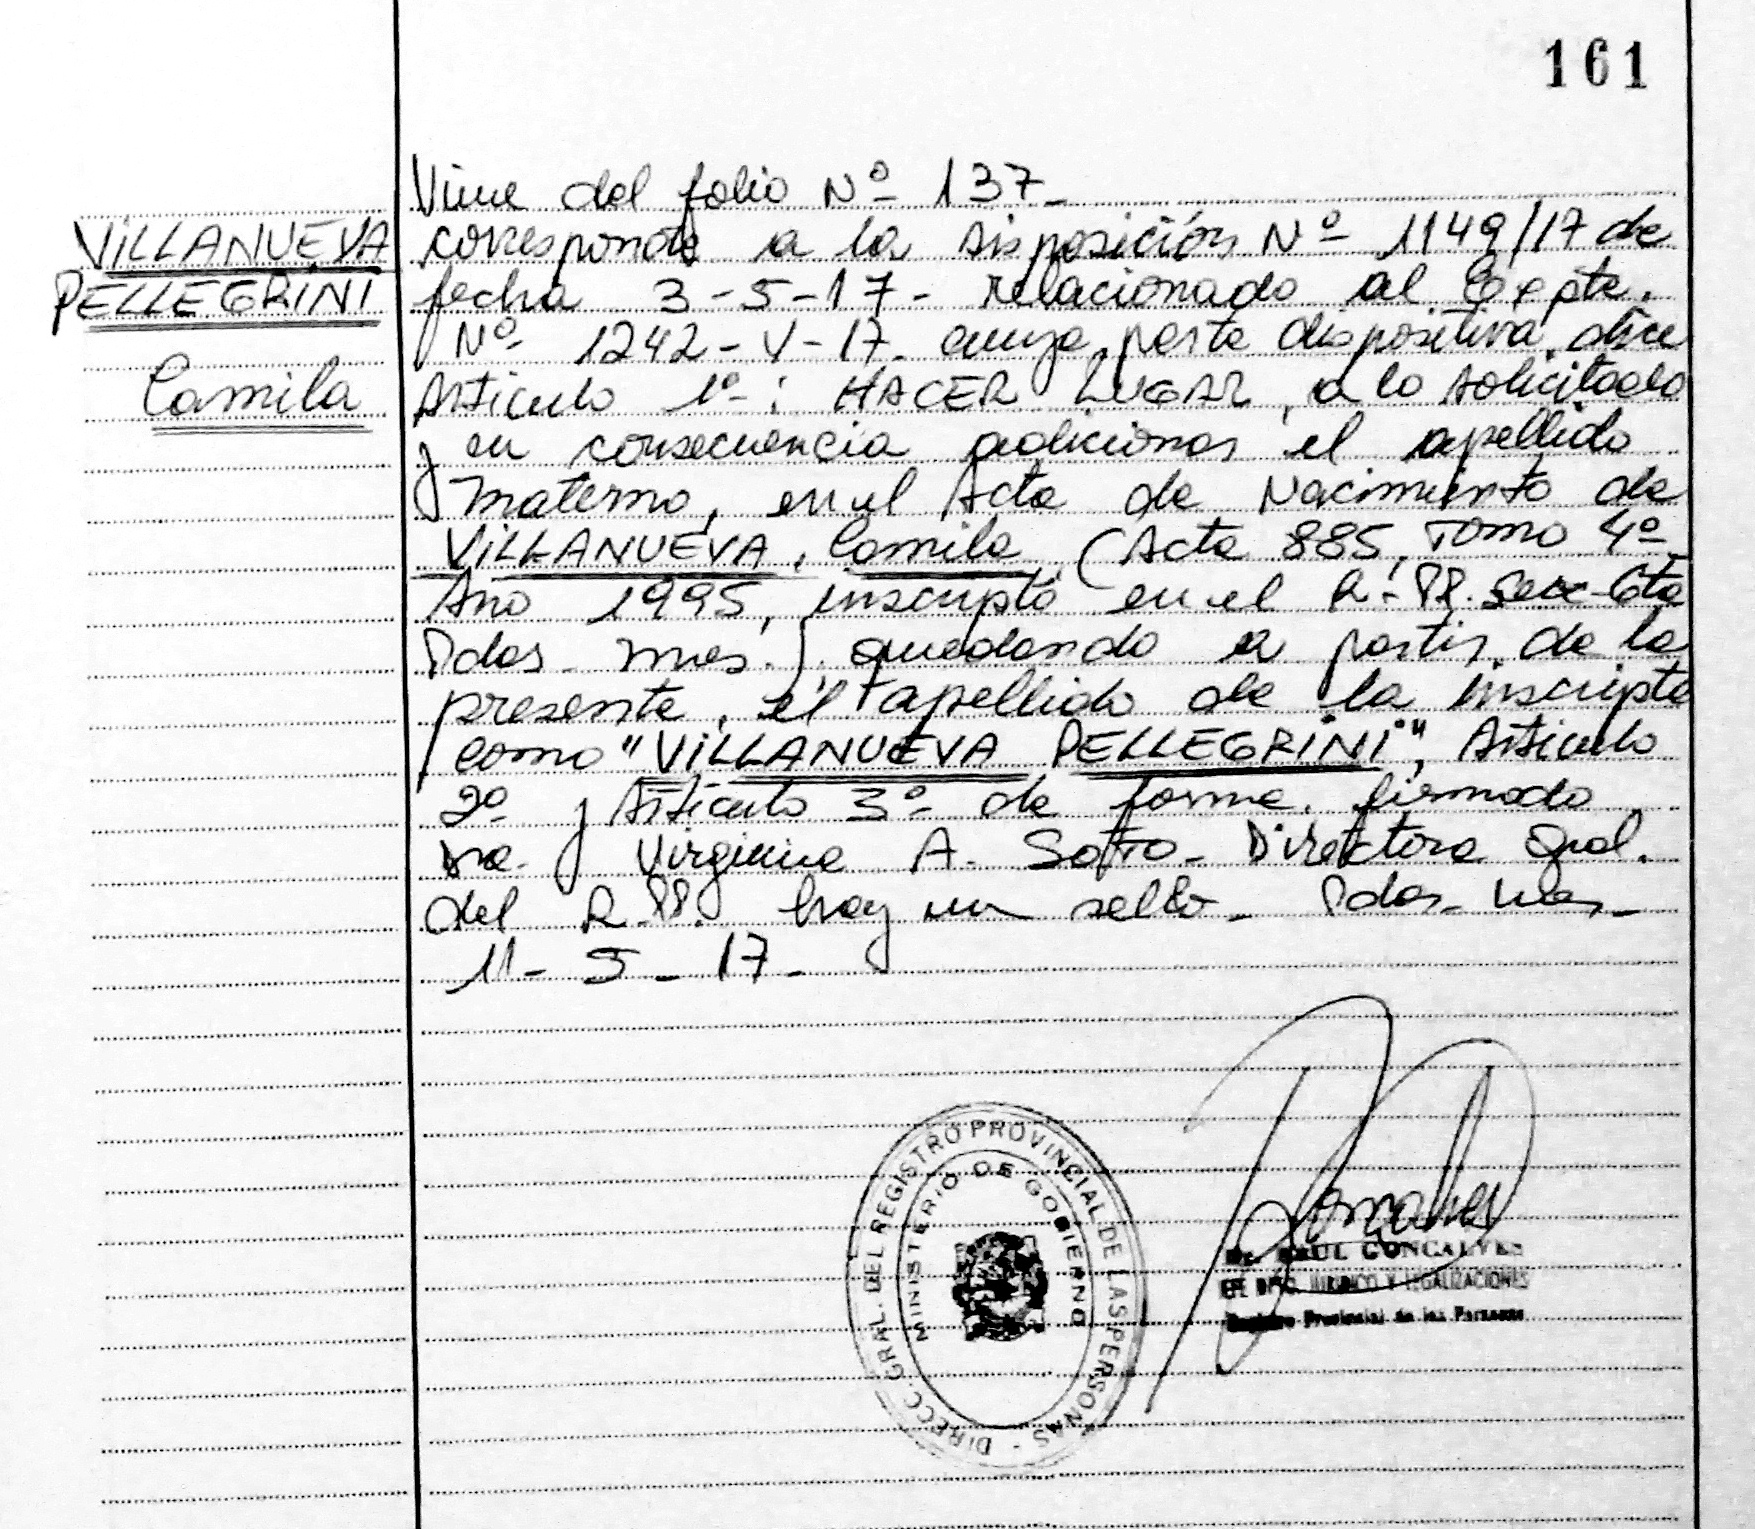 161
VILLANUEVA
PELLEGRINI
Camila
Viene del folio Nº 137-
corresponde a la disposición Nº 1149/17 de
fecha 3-5-17- relacionado al Expte.
Nº 1242-V-17- cuya parte dispositiva dice
Artículo 1º: HACER LUGAR, a lo solicitado
y en consecuencia adicionar el apellido
materno, en el Acta de Nacimiento de
VILLANUEVA, Camila (Acta 885, Tomo 4º
Año 1995, inscripta en el R.PP. Secc 6ta
Pdas. Mnes.) quedando a partir de la
presente, el apellido de la inscripta
como "VILLANUEVA PELLEGRINI", Artículo
2º y Artículo 3º de forma. firmado
Dra. Virginia A. Soto- Directora Gral.
del R.PP. hay un sello- Pdas- Mnes-
11-5-17-
DIRECC. GRAL. DEL REGISTRO PROVINCIAL DE LAS PERSONAS -
MINISTERIO DE GOBIERNO
RAUL GONCALVES
DPTO. JURIDICO Y LEGALIZACIONES
Registro Provincial de las Personas